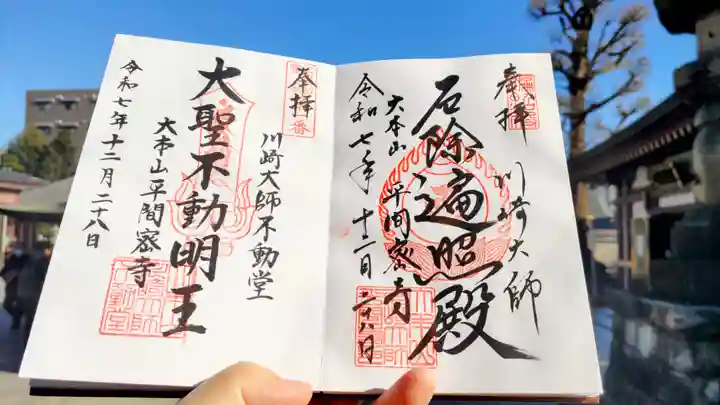 奉拝
川崎大師
厄除遍照殿
大本山 平間密寺
令和七年 十二月二十八日
奉拝
川崎大師不動堂
大聖不動明王
大本山平間密寺
令和七年十二月二十八日